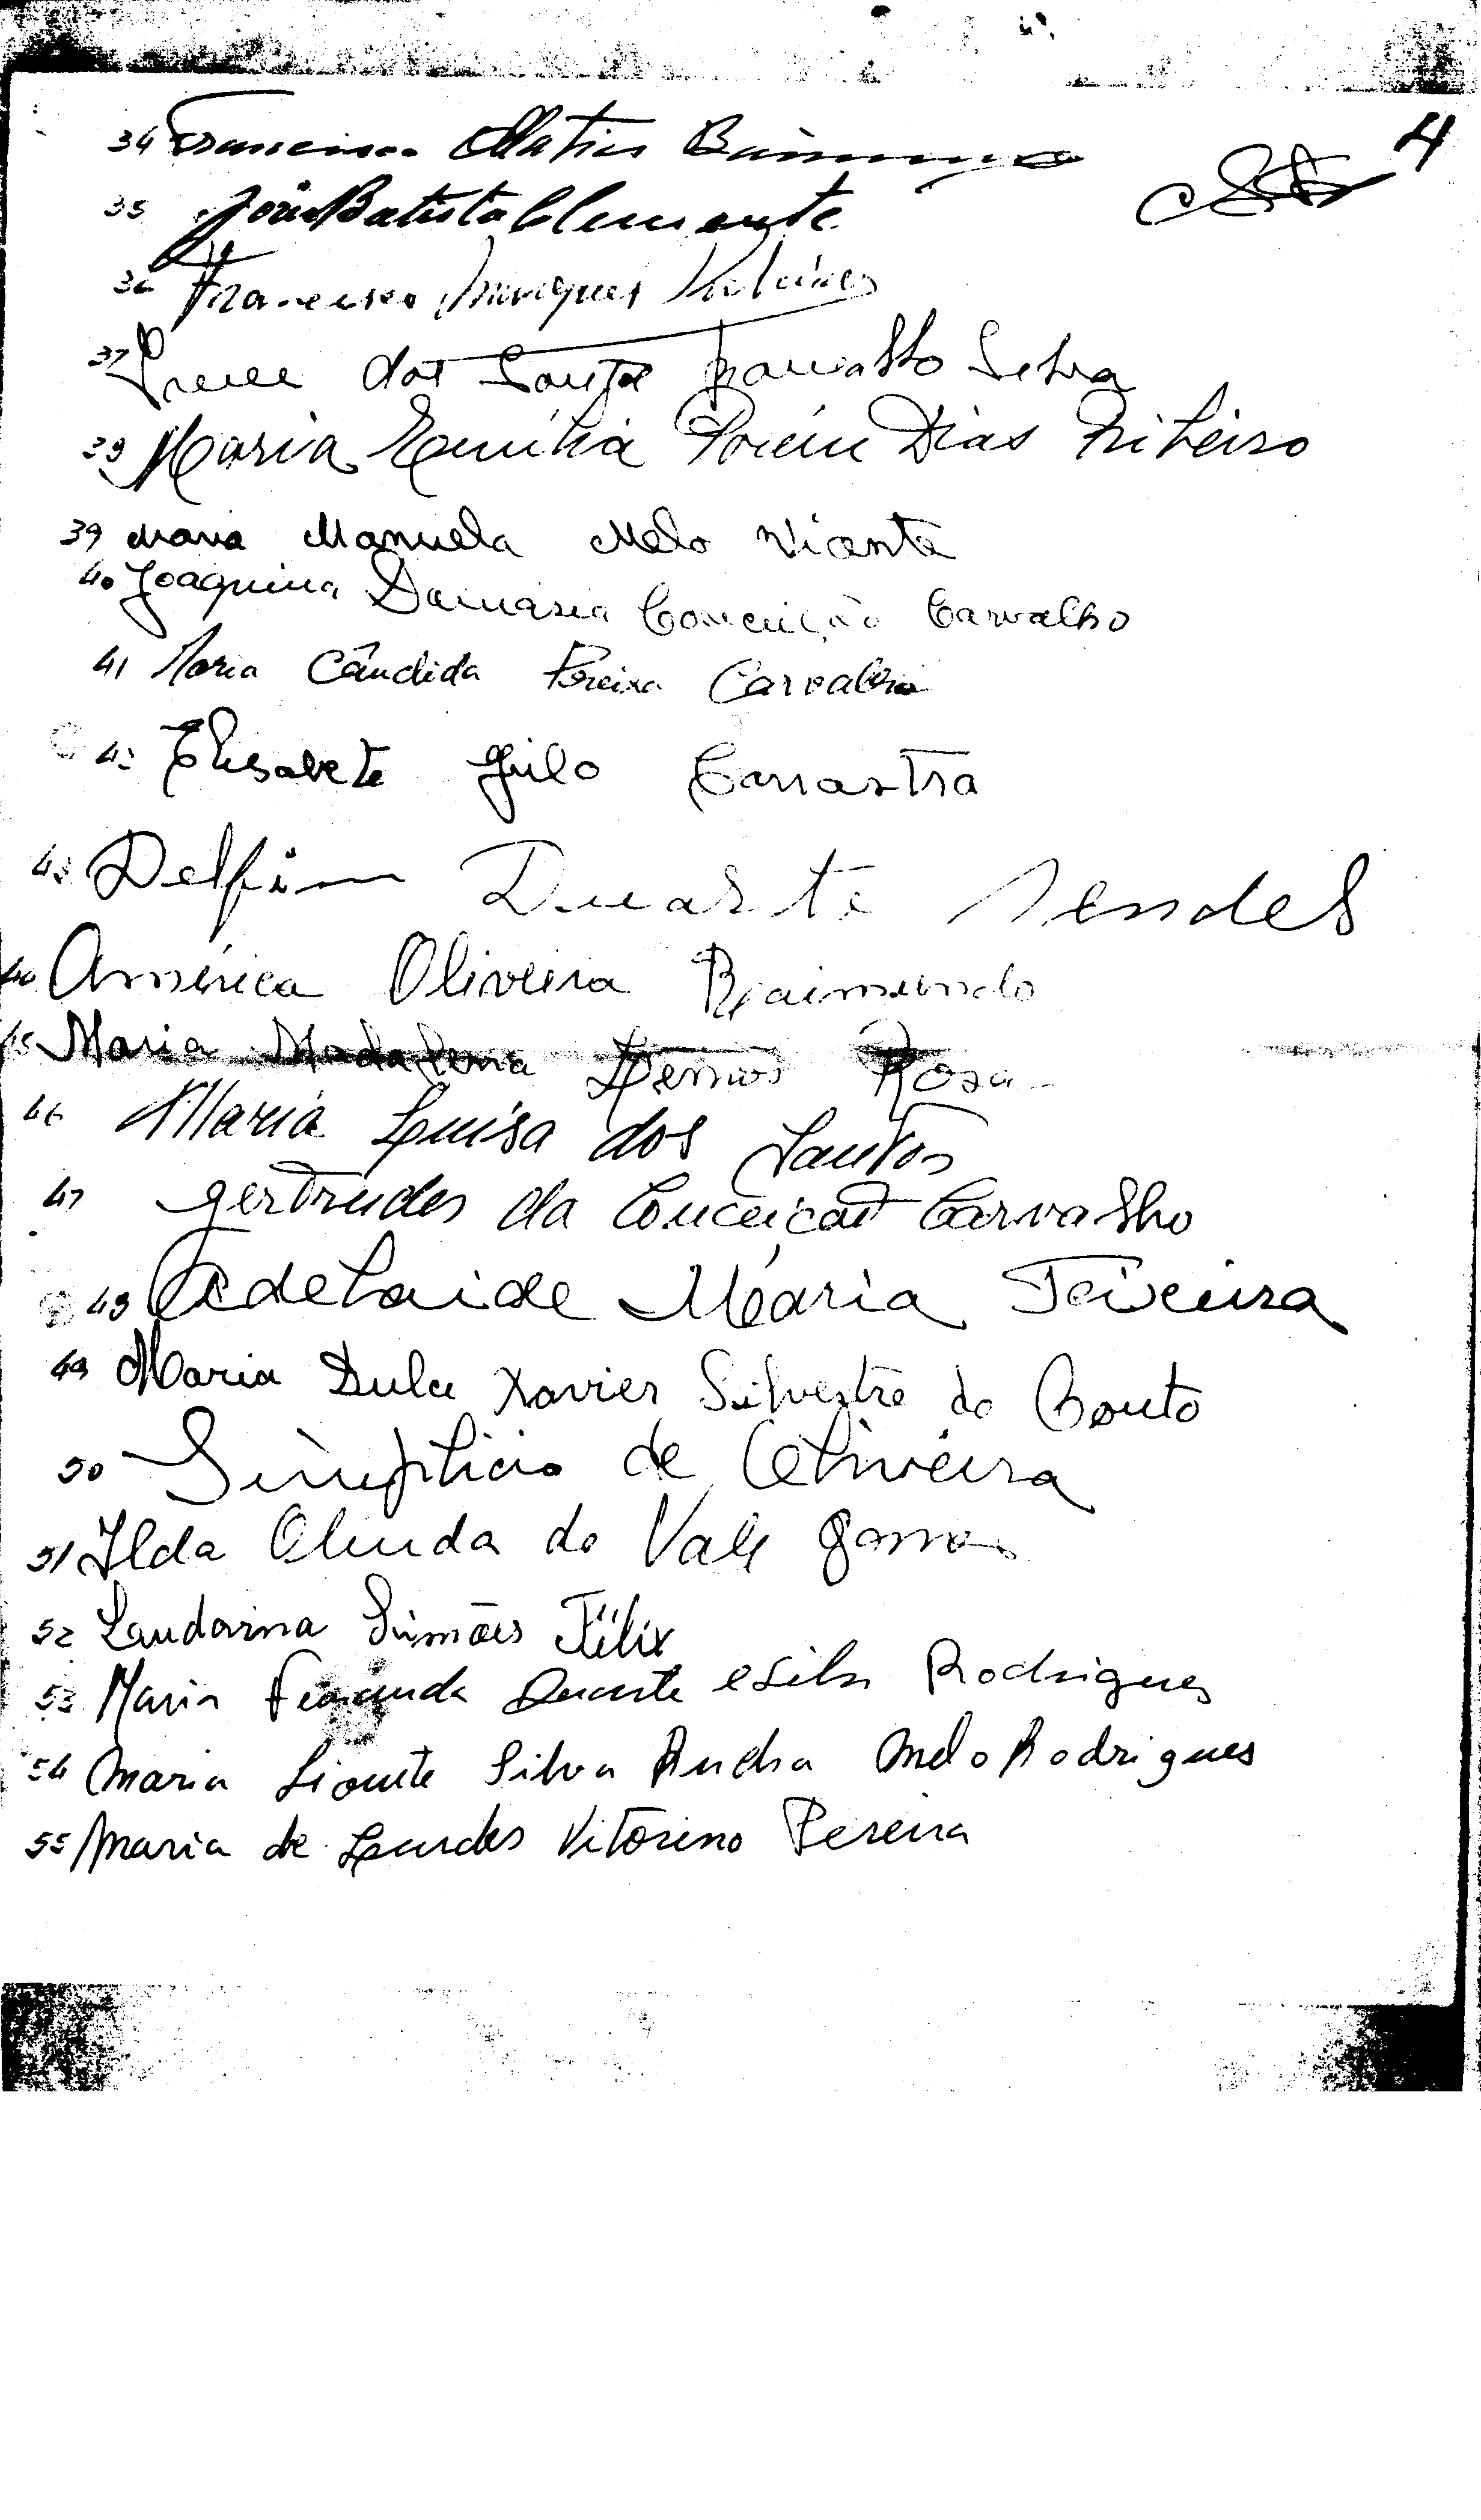 4
34 Francisco Matias
35 João Batista Clemente
36 Francisco
37 Irene dos Santos Carvalho Silva
38 Maria Emília Porém Dias Ribeiro
39 Maria Manuela Melo Vicente
40 Joaquina Damásia Conceição Carvalho
41 Maria Cândida Pereira Carvalho
42 Elisabete Grilo Canastra
43 Delfim Duarte Mendes
44 América Oliveira Raimundo
45 Maria Madalena Lemos Rosa
46 Maria Luísa dos Santos
47 Gertrudes da Conceição Carvalho
48 Adelaide Maria Teixeira
49 Maria Dulce Xavier Silvestre do Couto
50 Simplicio de Oliveira
51 Ilda Olinda do Vale
52 Laudarina Simões Félix
53 Maria Fernanda Duarte e Silva Rodrigues
54 Maria Silva Melo Rodrigues
55 Maria de Lourdes Vitorino Pereira